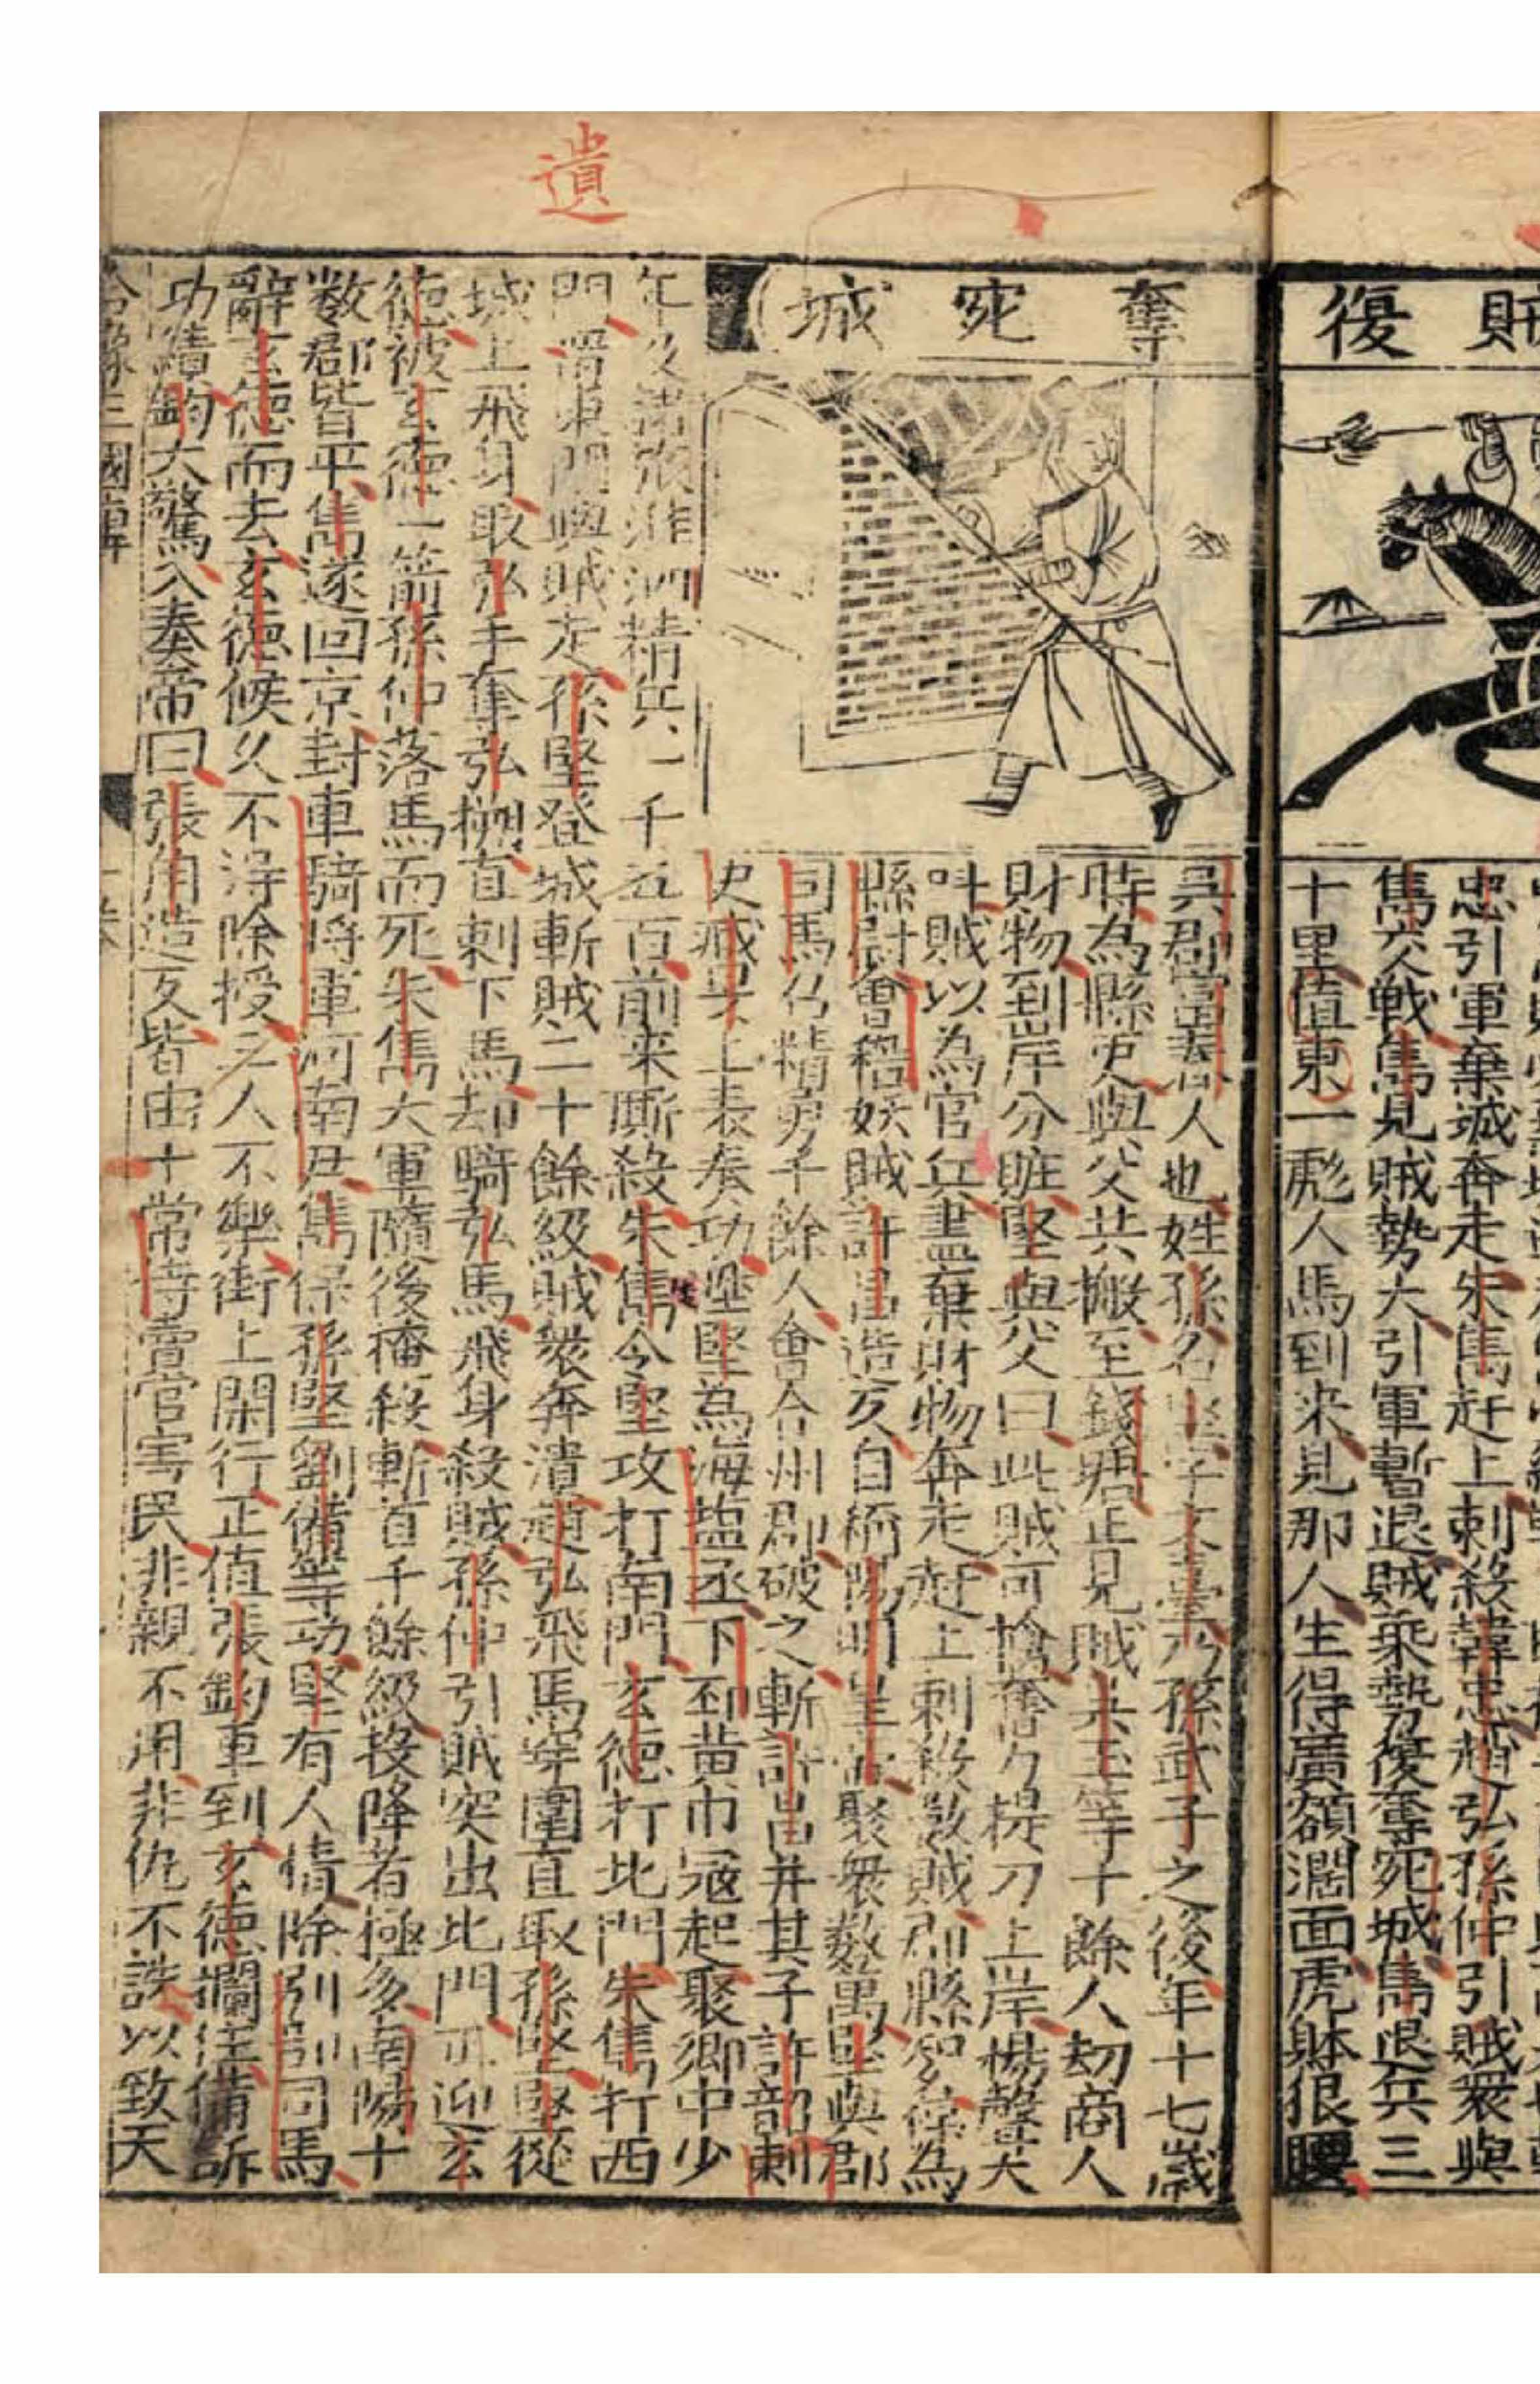 遺
賊復
十里值東一彪人馬到來見那人生得廣額濶面虎躰狠腰
雋交戰雋見賊勢大引軍暫退賊乘勢復奪宛城雋退兵三
忠引軍棄城奔走朱雋赶上刺殺韓忠趙弘孫仲引賊衆與
奪宛城
吳郡富春人也姓孫名堅字文臺乃孫武子之後年十七歲
時為縣吏與父共搬至錢塘正見賊胡玉等十餘人刼商人
財物到岸分賍堅與父曰此賊可擒奮力提刀上岸楊聲大
叫賊以為官兵盡棄財物奔走赶上刺殺數賊郡縣知名保為
縣尉會稽妖賊許昌造反自稱陽明皇帝聚衆數萬堅與郡
司馬名精勇千餘人會合州郡破之斬許昌并其子許韶刺
史臧旻上表奏功堅為海塩丞下邳黃巾冦起聚鄉中少
年及諸旅淮泗精兵一千五百前來厮殺朱雋令堅攻打南門玄德打北門朱雋打西
門留東門與賊走孫堅登城斬賊二十餘級賊衆奔潰趙弘飛馬穿圍直取孫堅堅從
城上飛身取弘手奪弘槊直刺下馬却騎弘馬飛身殺賊孫仲引賊突出北門正迎玄
德被玄德一箭孫仲落馬而死朱雋大軍隨後掩殺斬首千餘級投降者極多南陽十
数郡皆平雋遂回京封車騎將軍河南尹雋保孫堅劉備等功堅有人情除別郡司馬
辭玄德而去玄德候久不得除授三人不樂街上閑行正值張鈞車到玄德攔住備訴
功績鈞大驚入奏帝曰張角造反皆由十常侍賣官害民非親不用非仇不誅以致天
三國傳